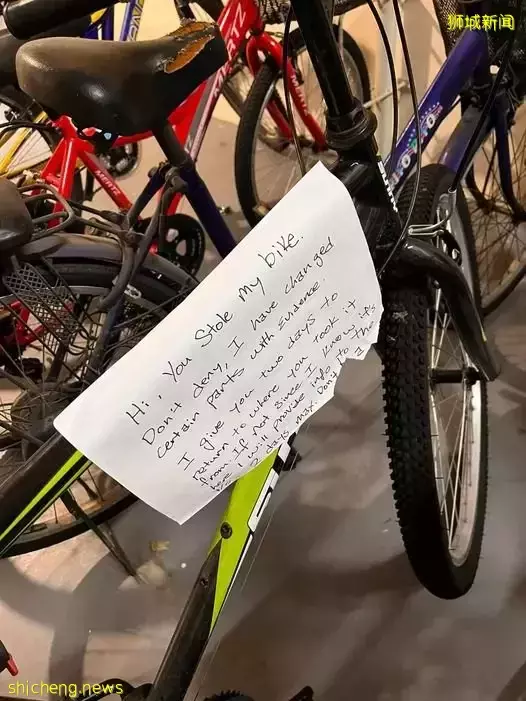 狮城新闻
Hi, You Stole my bike.
Don't deny, I have changed
certain parts with evidence.
I give you two days to
return to where you took it
from. If not since I know it's
here I will provide info to the
2 days max. Don't
MARTZ
MARTZ
shicheng.news